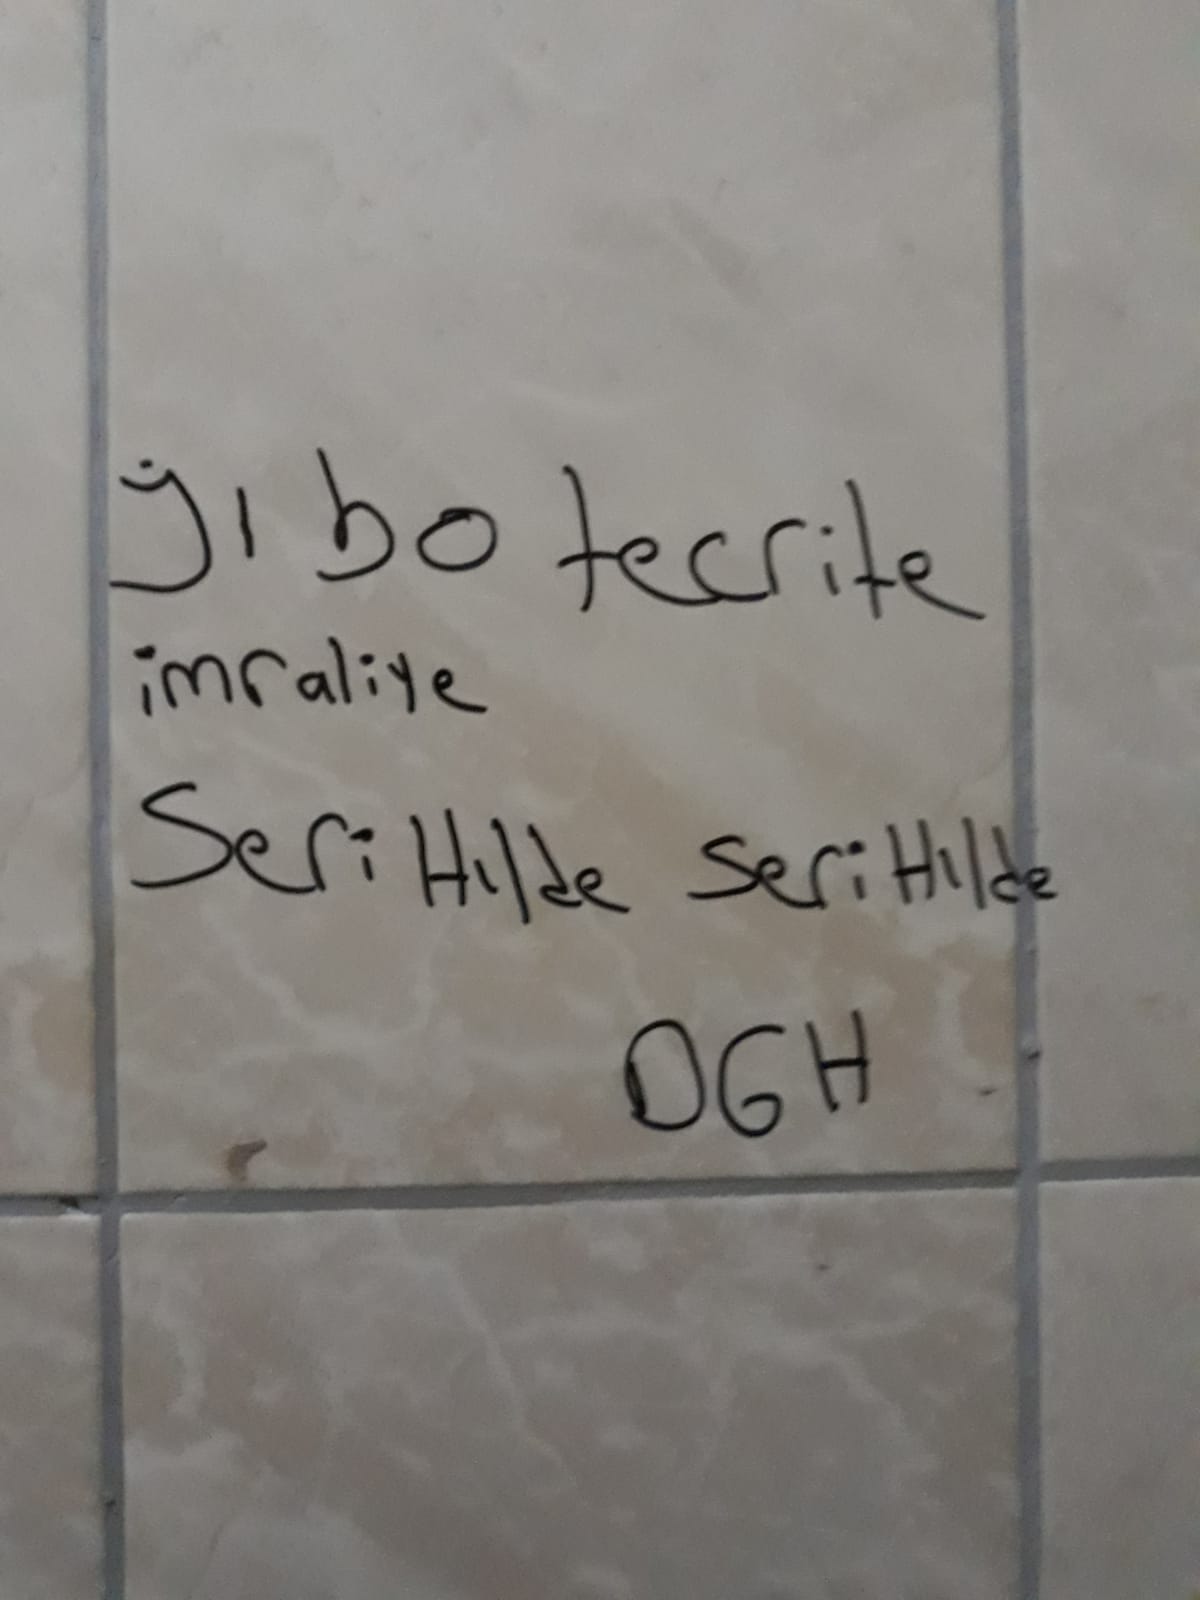 ji bo tecrite
imraliye
Seri Hılde Seri Hılde
DGH